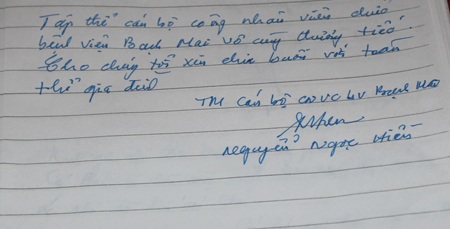 Tập thể cán bộ công nhân viên chức
bệnh viện Bạch Mai vô cùng thương tiếc.
Cho chúng tôi xin chia buồn với toàn
thể gia đình
TM cán bộ CNVC BV Bạch Mai
Nguyễn Ngọc Hiền